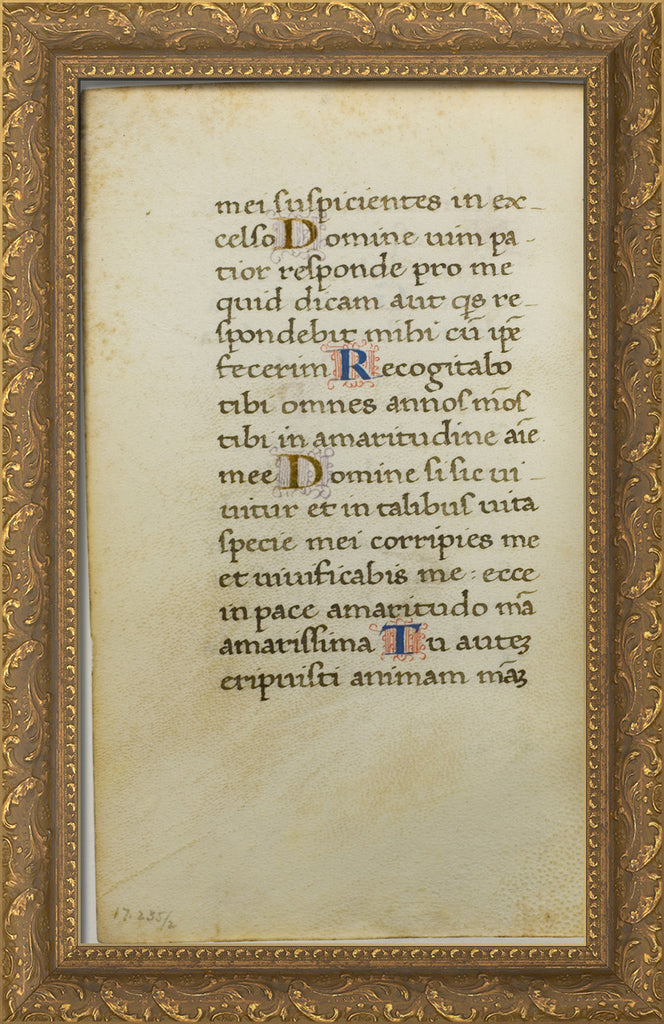 mei suspicientes in ex-
celso Domine uim pa-
tior responde pro me
quid dicam aut qs re-
spondebit mihi cū ip̄e
fecerim Recogitabo
tibi omnes annos m̄os
tibi in amaritudine aīe
mee Domine si sic ui-
uitur et in talibus uita
specie mei corripies me
et uiuificabis me : ecce
in pace amaritudo m̄a
amarissima Tu auteȝ
eripuisti animam m̄aȝ
17.235/2